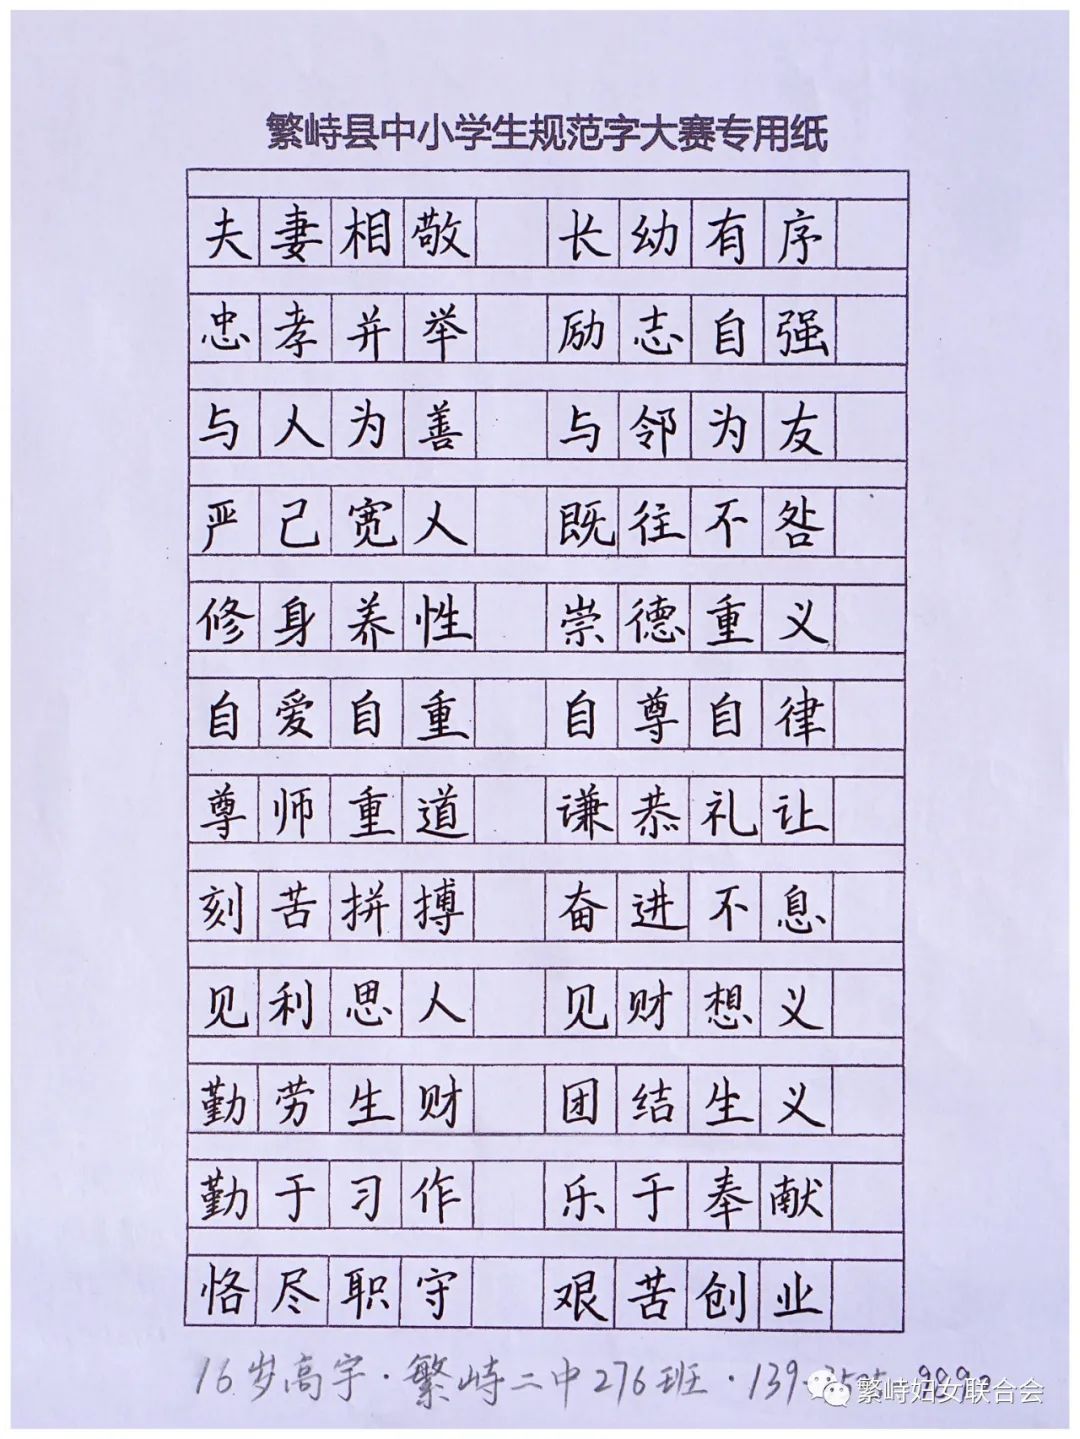 繁峙县中小学生规范字大赛专用纸
夫妻相敬 长幼有序
忠孝并举 励志自强
与人为善 与邻为友
严己宽人 既往不咎
修身养性 崇德重义
自爱自重 自尊自律
尊师重道 谦恭礼让
刻苦拼搏 奋进不息
见利思人 见财想义
勤劳生财 团结生义
勤于习作 乐于奉献
恪尽职守 艰苦创业
16岁高宇·繁峙二中276班·139
繁峙妇女联合会